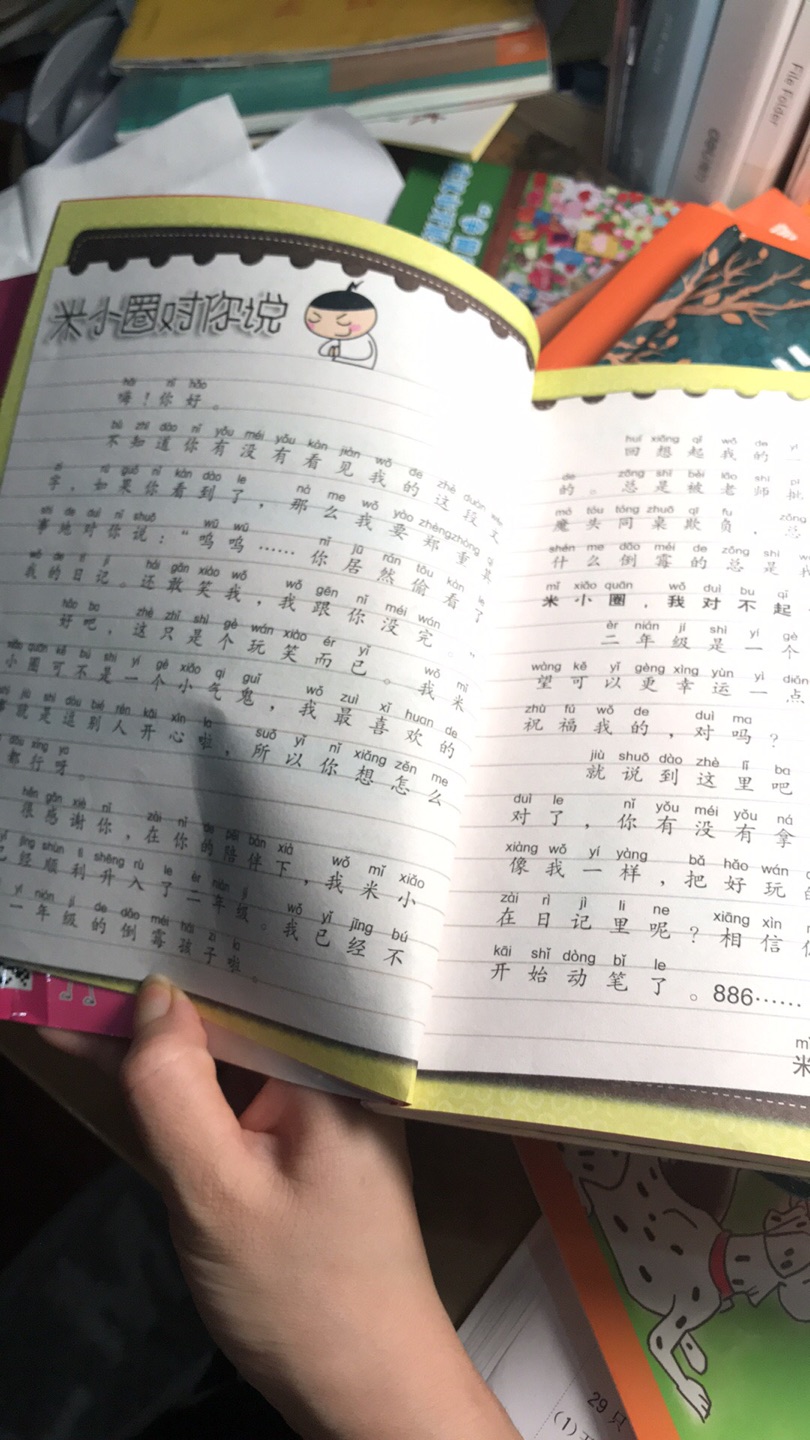 File Folder
米小圈对你说
hāi nǐ hǎo
嗨！你好。
bù zhī dào nǐ yǒu méi yǒu kàn jiàn wǒ de zhè duàn
不知道你有没有看见我的这段文
zì rú guǒ nǐ kàn dào le nà me wǒ yào zhèngzhòng qí
字，如果你看到了，那么我要郑重其
shì de duì nǐ shuō wū wū nǐ jū rán tōu kàn le
事地对你说：“呜呜……你居然偷看了
wǒ de rì jì hái gǎn xiào wǒ wǒ gēn nǐ méi wán
我的日记。还敢笑我，我跟你没完。”
hǎo ba zhè zhǐ shì gè wán xiào ér yǐ wǒ mǐ
好吧，这只是个玩笑而已。我米
xiǎo quān kě bú shì yí gè xiǎo qì guǐ wǒ zuì xǐ huan de
小圈可不是一个小气鬼，我最喜欢的
shì jiù shì dòu bié rén kāi xīn la suǒ yǐ nǐ xiǎng zěn me
事就是逗别人开心啦，所以你想怎么
dōu xíng ya
都行呀。
hěn gǎn xiè nǐ zài nǐ de péi bàn xià wǒ mǐ xiǎo
很感谢你，在你的陪伴下，我米小
yǐ jīng shùn lì shēng rù le èr nián jí wǒ yǐ jīng bú
已经顺利升入了二年级。我已经不
yī nián jí de dǎo méi hái zi la
一年级的倒霉孩子啦。
huí xiǎng qǐ wǒ de yī
回想起我的一
de zǒng shì bèi lǎo shī pái
的。总是被老师排
mó tóu tóng zhuō qī fu zǒng
魔头同桌欺负，总
shén me dǎo méi de zǒng shì wǒ
什么倒霉的总是我
mǐ xiǎo quān wǒ duì bu qǐ
米小圈，我对不起
èr nián jí shì yí gè
二年级是一个
wàng kě yǐ gèng xìng yùn yì diǎn
望可以更幸运一点
zhù fú wǒ de duì ma
祝福我的，对吗？
jiù shuō dào zhè lǐ ba
就说到这里吧
duì le nǐ yǒu méi yǒu ná
对了，你有没有拿
xiàng wǒ yí yàng bǎ hǎo wán
像我一样，把好玩的
zài rì jì li ne xiāng xìn
在日记里呢？相信你
kāi shǐ dòng bǐ le
开始动笔了。886……
mǐ
米
29 只
(1)